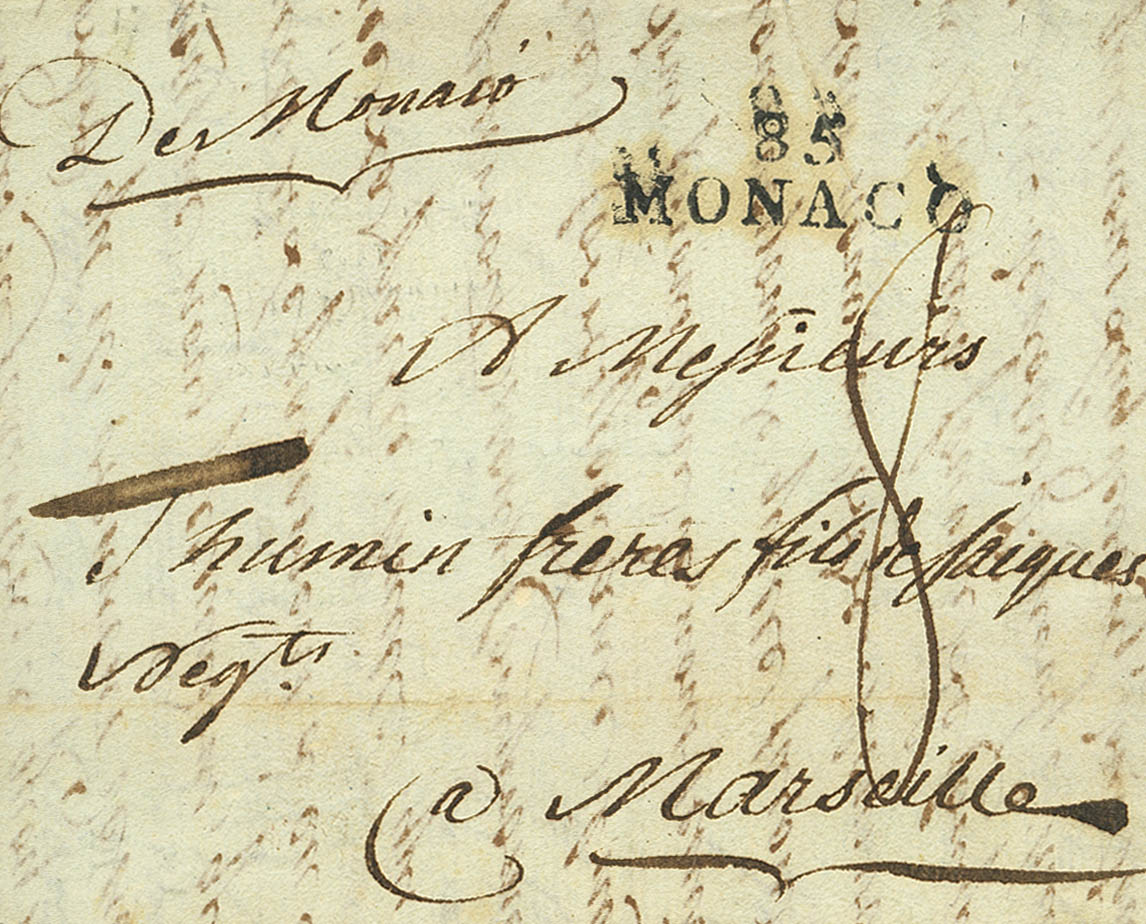 De Monaco
85
MONACO
A Messieurs
Thumin freres fils de
Negts.
a Marseille
8